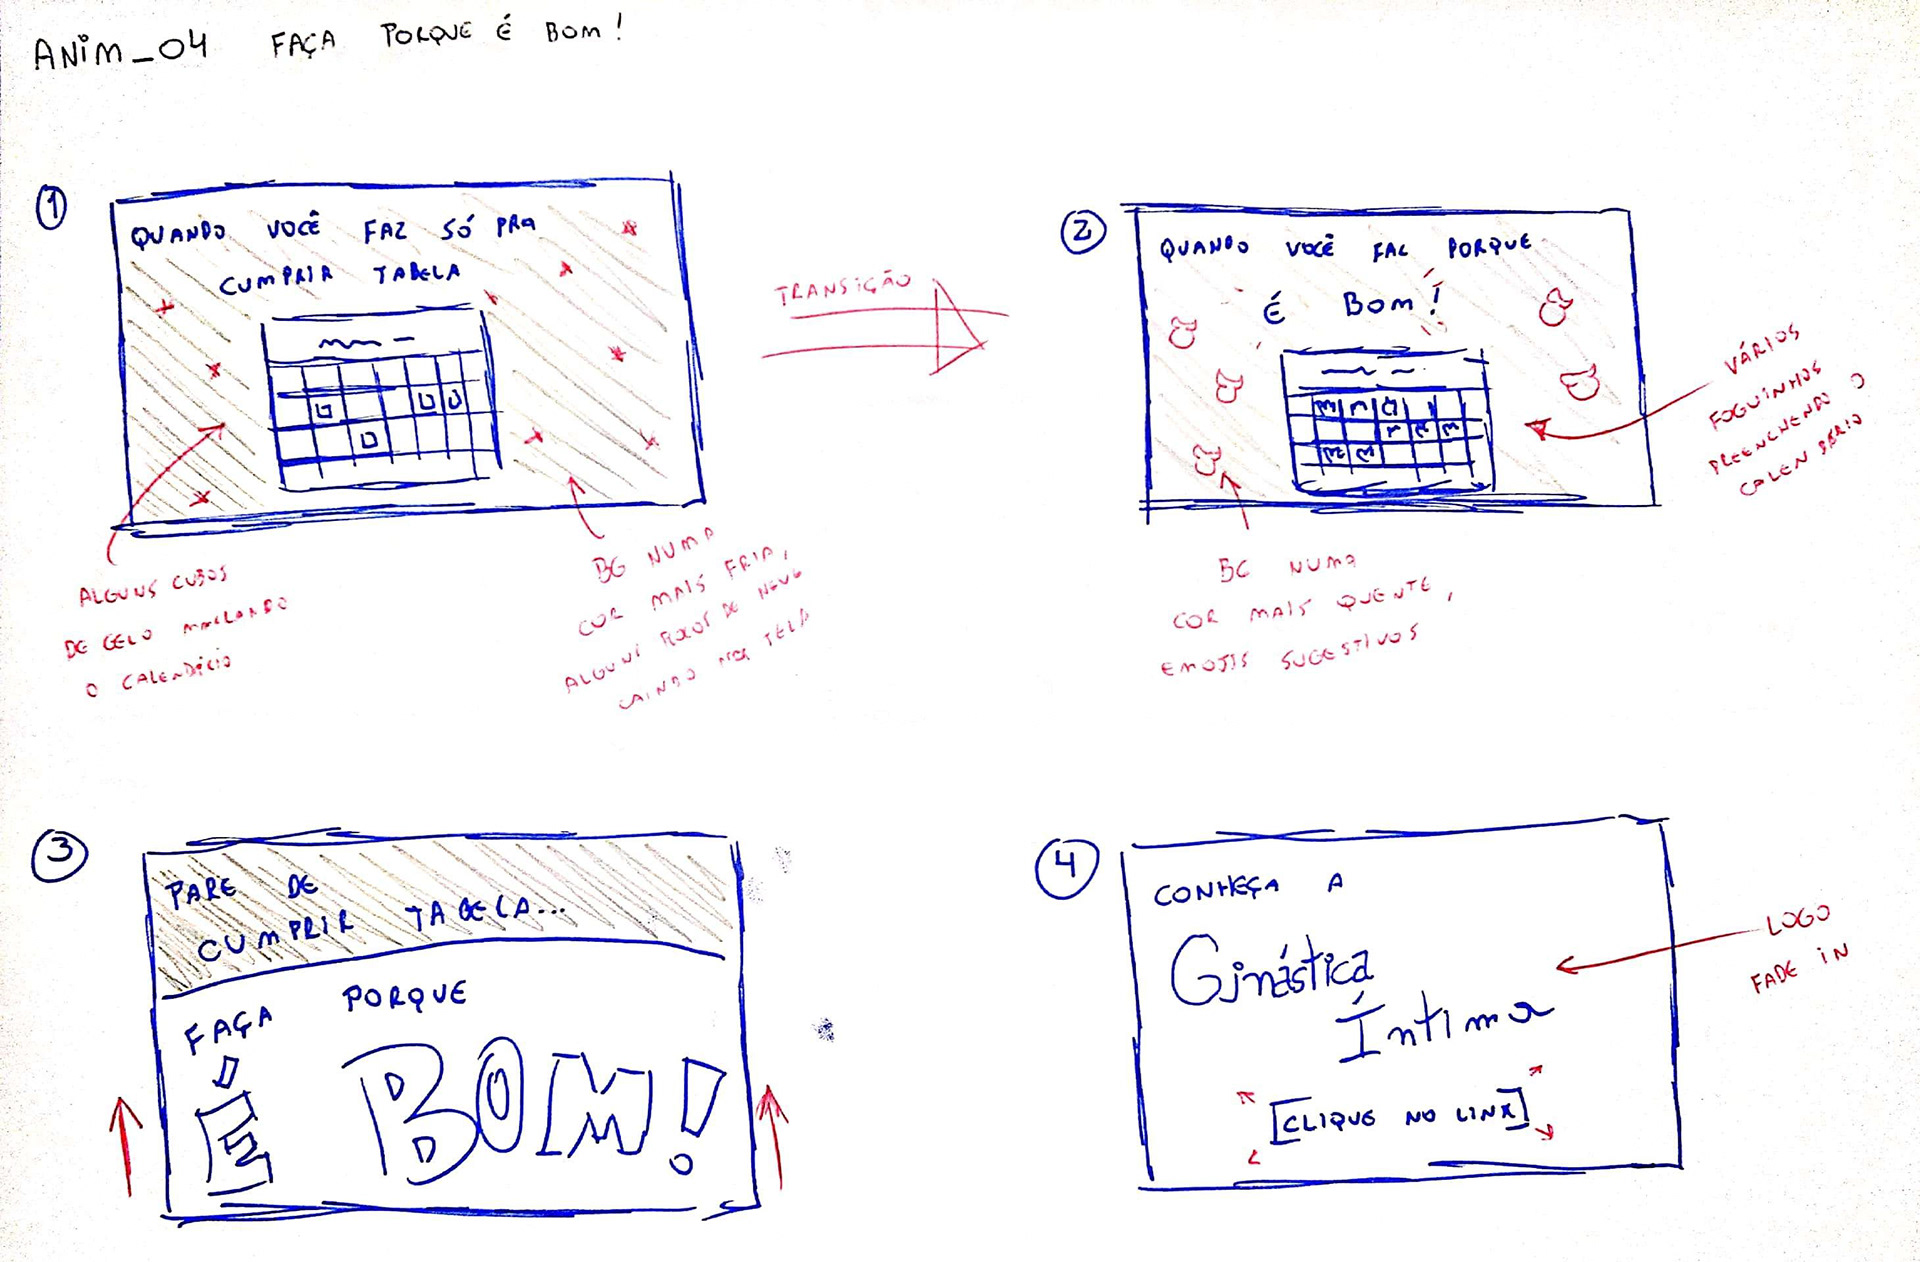 ANIM_04 FAÇA PORQUE É BOM!
1
QUANDO VOCÊ FAZ SÓ PRA
CUMPRIR TABELA
ALGUNS CUBOS
DE GELO
O CALENDÁRIO
BG NUMA
COR MAIS FRIA,
ALGUNS FLOCOS DE NEVE
CAINDO NA TELA
TRANSIÇÃO
2
QUANDO VOCÊ FAZ PORQUE
É BOM!
VÁRIOS
FOGUINHOS
PREENCHENDO O
CALENDÁRIO
BG NUMA
COR MAIS QUENTE,
EMOJIS SUGESTIVOS
3
PARE DE
CUMPRIR TABELA...
FAÇA PORQUE
É BOM!
4
CONHEÇA A
Ginástica
Íntima
[CLIQUE NO LINK]
LOGO
FADE IN